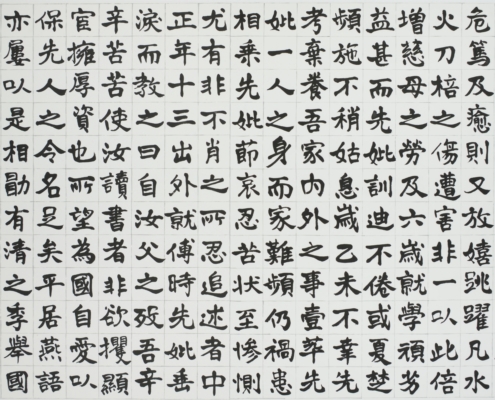 危篤及癒則又放嬉跳躍凡水
火刀棓之傷遭害非一以此倍
增慈母之勞及六歲就學頑劣
益甚而先妣訓迪不倦或夏楚
頻施不稍姑息歲乙未不幸先
考棄養吾家內外之事壹萃先
妣一人之身而家難頻仍禍患
相乘先妣節哀忍苦狀至慘惻
尤有非不肖之所忍追述者中
正年十三出外就傅時先妣垂
淚而教之曰自汝父之歿吾辛
辛苦苦使汝讀書者非欲攫顯
官擁厚資也所望為國自愛以
保先人之令名足矣平居燕語
亦屢以是相勛有清之季舉國